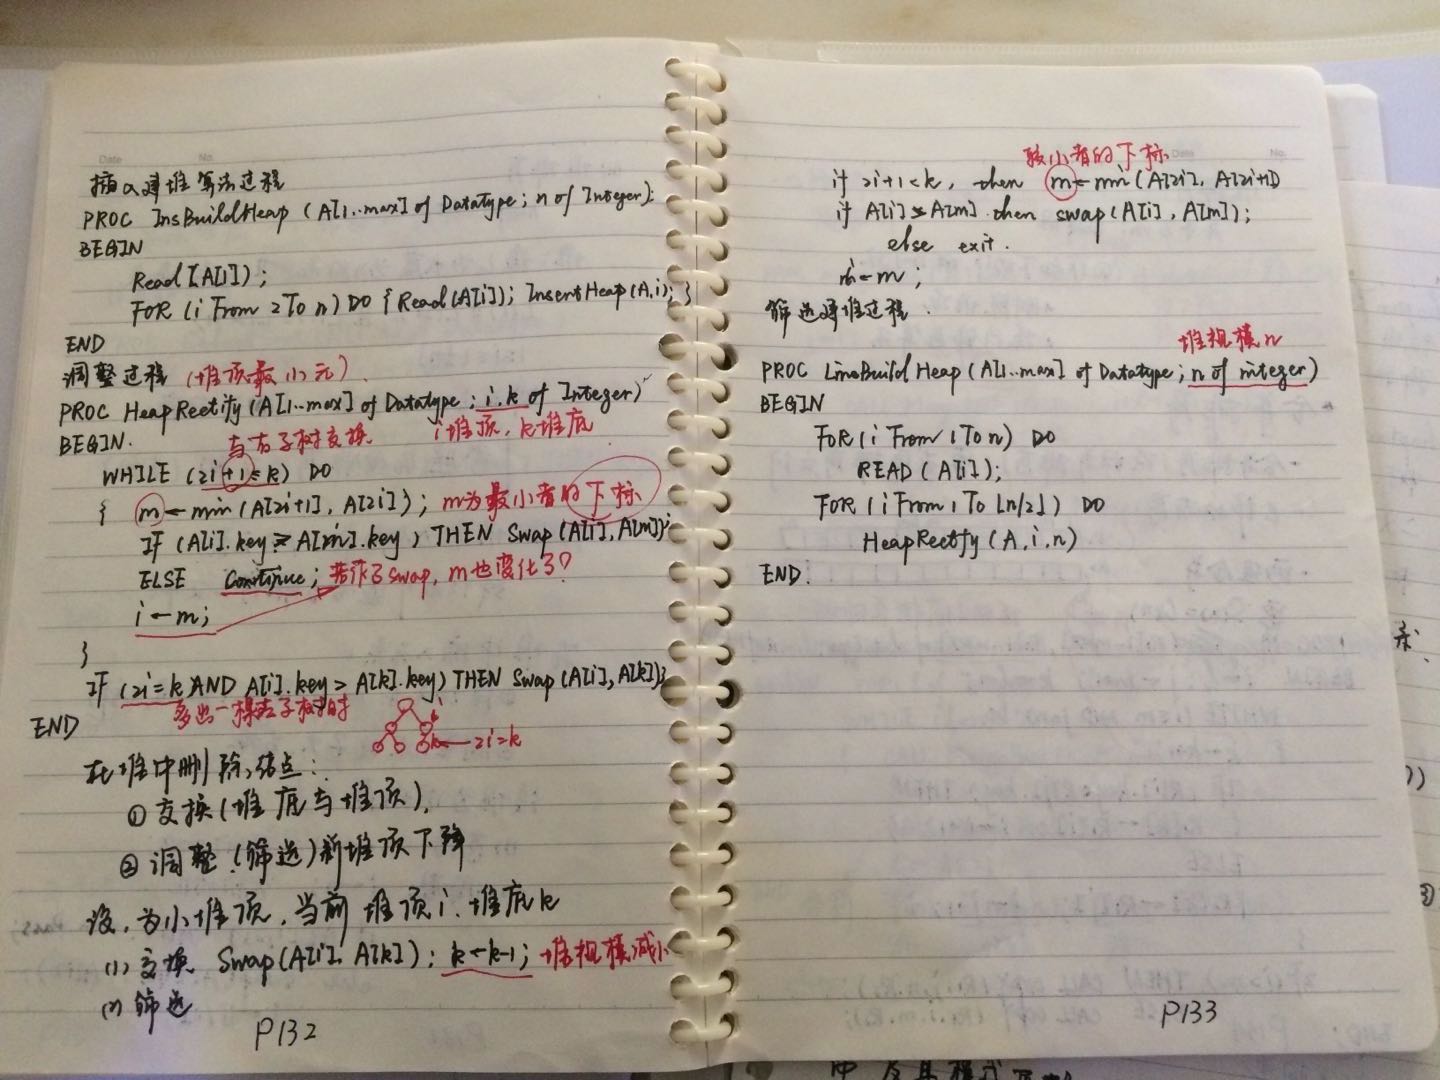 Date No.
插入建堆算法过程
PROC InsBuildHeap (A[1..max] of Datatype; n of Integer):
BEGIN
Read[A[1]);
FOR (i From 2 To n) DO {Read(A[i]); InsertHeap(A,i); }
END
调整过程 (堆顶最小元).
PROC HeapRectify (A[1..max] of Datatype; i.k of Integer)
BEGIN. 与右子树交换 i堆顶, k堆底
WHILE (2i+1≤k) DO
{ m←min(A[2i+1], A[2i]); m为最小者的下标
If (A[i].key≥A[m].key) THEN Swap(A[i],A[m]);
ELSE Continue; 若作了swap, m也变化了?
i←m;
}
If (2i=k AND A[i].key>A[k].key) THEN Swap(A[i],A[k]);
多出一棵左子树时
END
i
k 2i=k
在堆中删除结点:
① 交换(堆底与堆顶),
② 调整(筛选)新堆顶下降
设, 为小堆顶, 当前堆顶i. 堆底k
(1) 交换 Swap(A[i], A[k]); k←k-1; 堆规模减小
(2) 筛选
P132
较小者的下标
Date No.
if 2i+1<k, then m←min(A[2i], A[2i+1])
if A[i]≥A[m] then swap(A[i], A[m]);
else exit.
i←m;
筛选建堆过程.
堆规模n
PROC LinsBuildHeap (A[1..max] of Datatype; n of integer)
BEGIN
FOR (i From 1 To n) DO
READ (A[i]);
FOR (i From 1 To ⌊n/2⌋) DO
HeapRectfy (A,i,n)
END.
P133